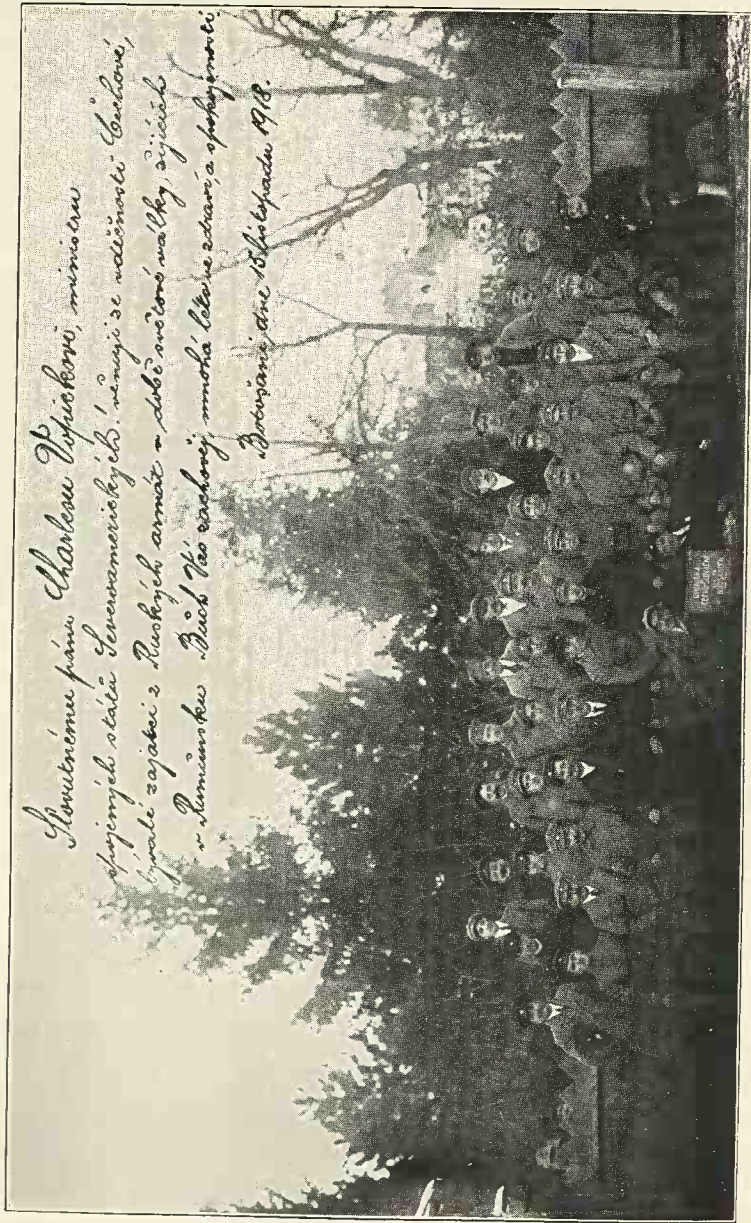 Slovutnému pánu Charlesu Vopičkovi, ministru
spojených států Severoamerických! věnují se vděčností Čechové,
bývalé zajatci z Ruských armát v době světové války, žijících
v Rumunsku Bůh Vás zachovej, mnohá léta ve zdraví, a spokojenosti
Botošani, dne 15 listopadu 1918.